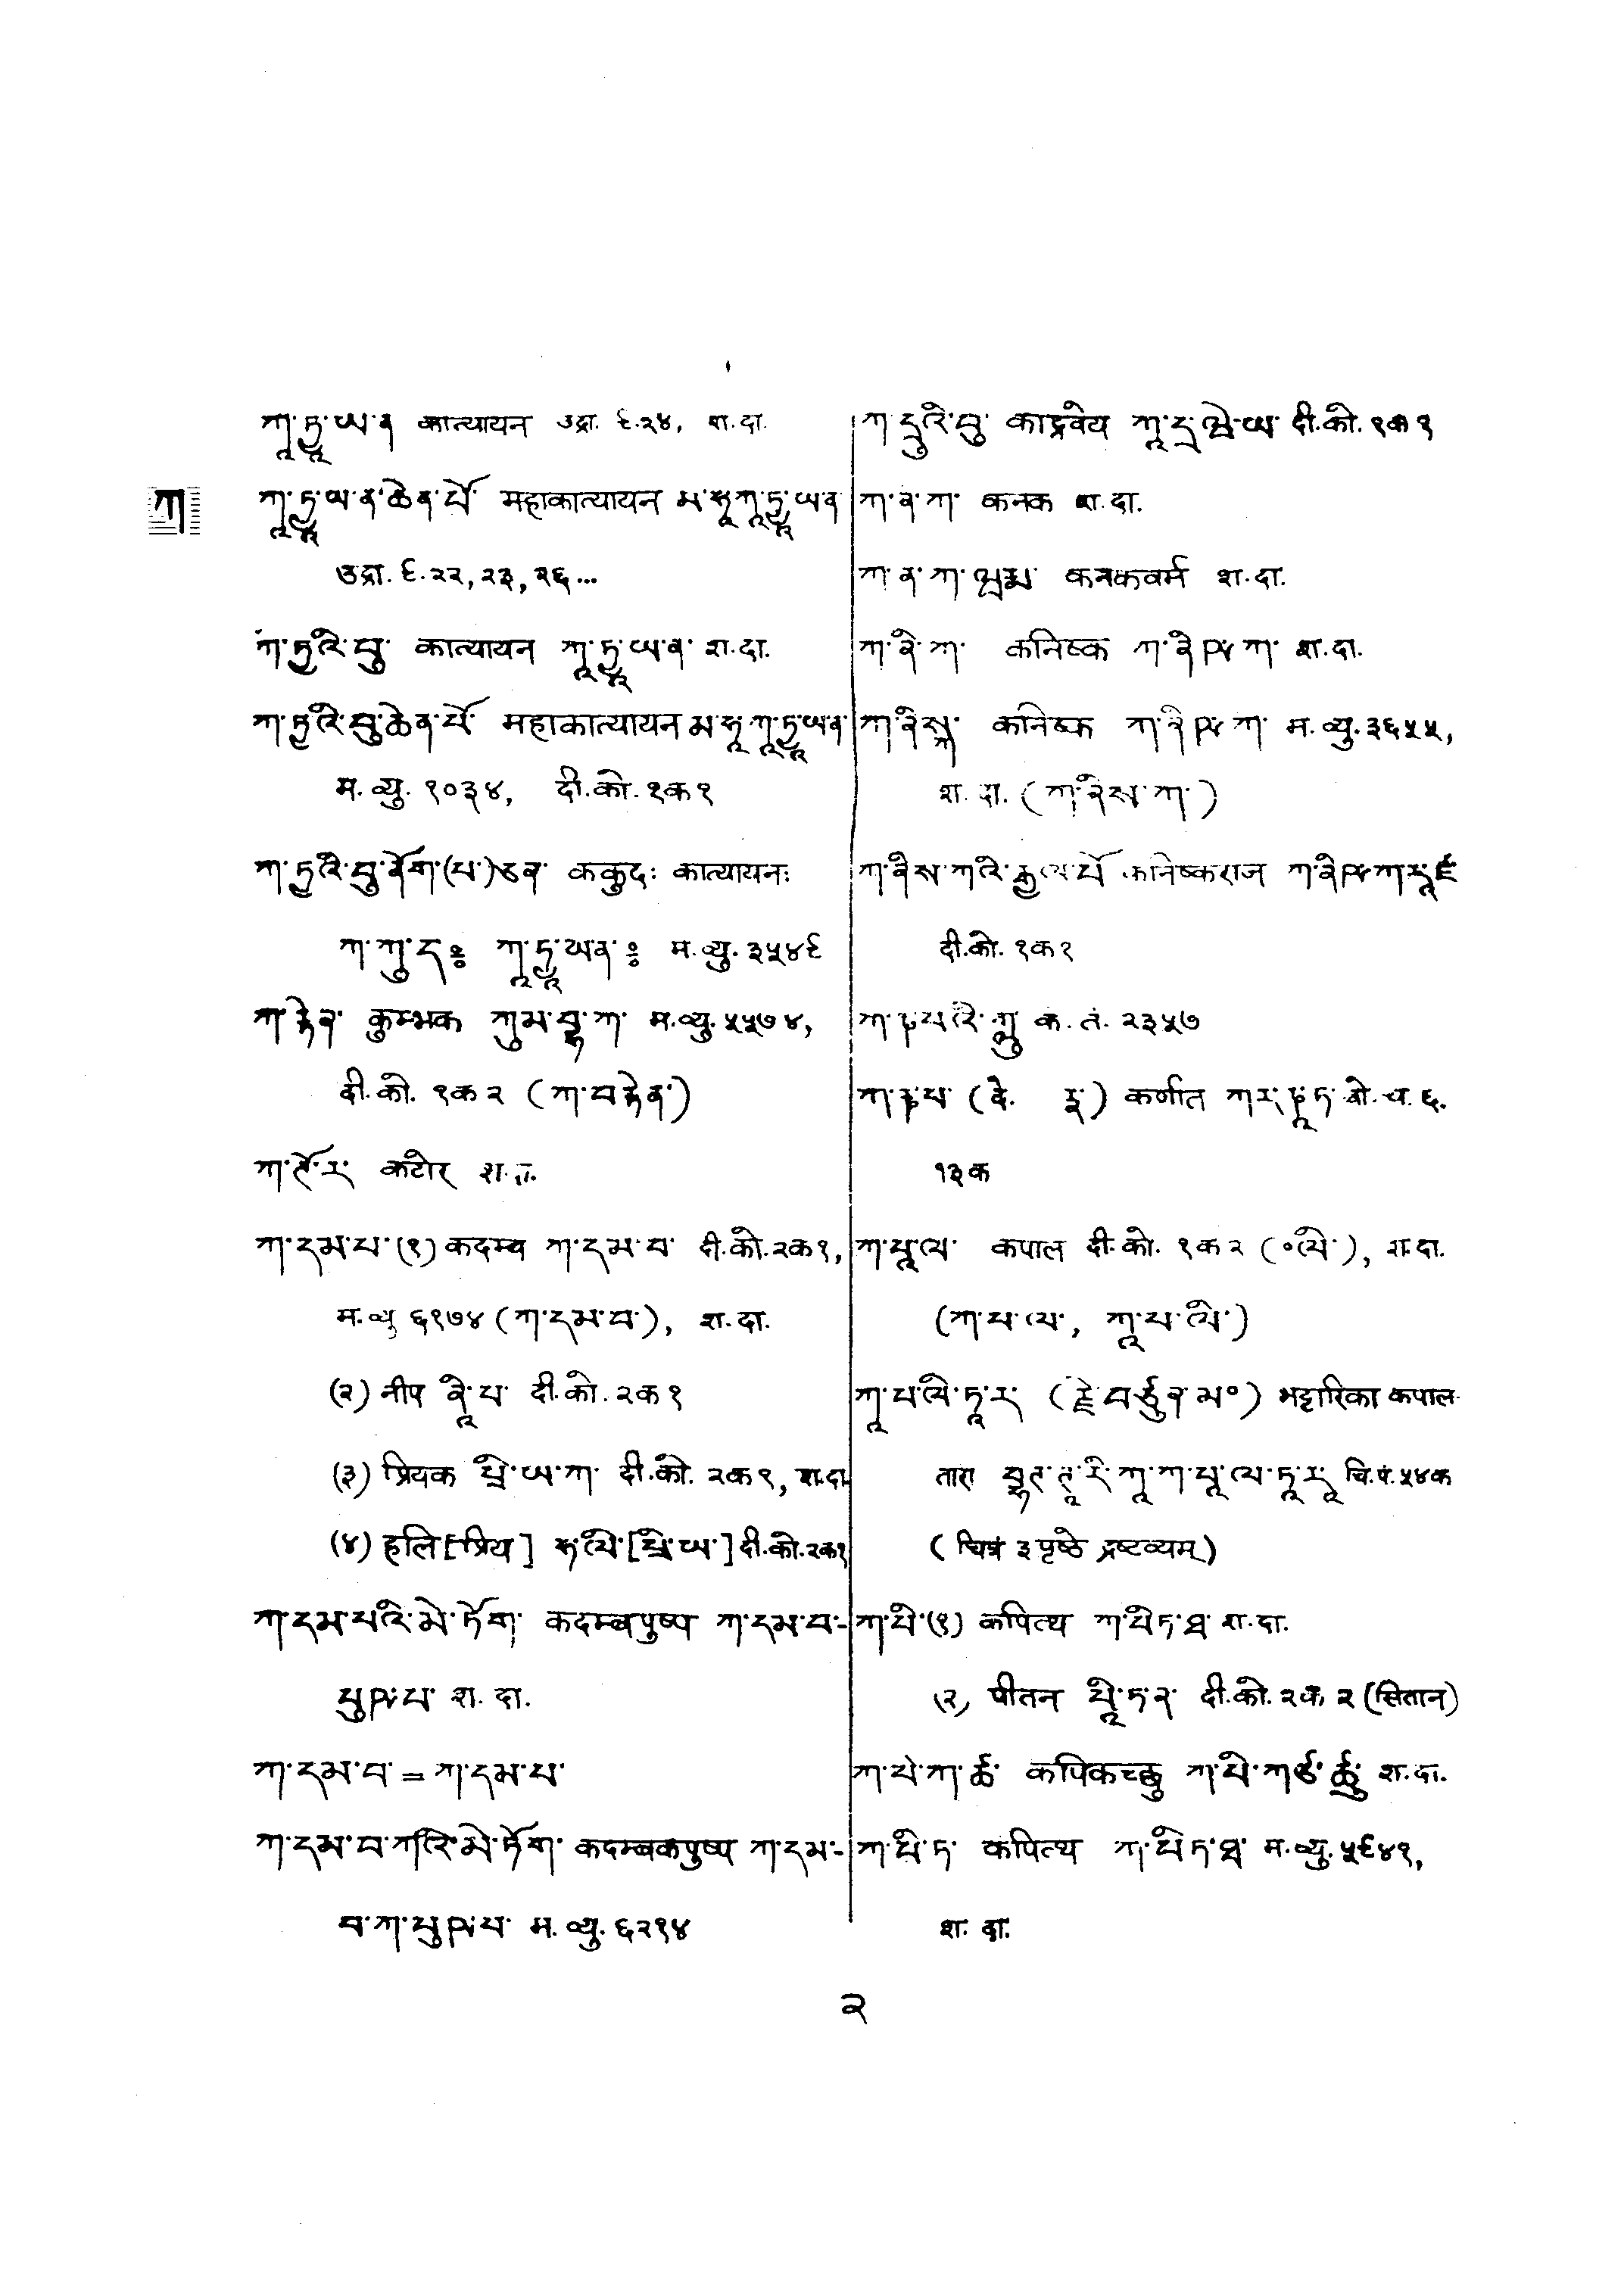 ཀཱ་ཏྱཱ་ཡ་ན कात्यायन उद्रा. ६.२४, श.दा.
ཀ
ཀཱ་ཏྱཱ་ཡ་ན་ཆེན་པོ་ महाकात्यायन མ་ཧཱ་ཀཱ་ཏྱཱ་ཡན
उद्रा. ६.२२, २३, २६...
ཀ་ཏྱའི་བུ་ कात्यायन ཀཱ་ཏྱཱ་ཡ་ན་ श.दा.
ཀ་ཏྱའི་བུ་ཆེན་པོ་ महाकात्यायन མ་ཧཱ་ཀཱ་ཏྱཱ་ཡན་
म.व्यु. १०३४, दी.को. १क१
ཀ་ཏྱའི་བུ་ནོག་(པ་)ཅན་ ककुदः कात्यायनः
ཀ་ཀུ་དཿ ཀཱ་ཏྱཱ་ཡནཿ म.व्यु. ३५४६
ཀ་རྟེན་ कुम्भक ཀུམ་བྷ་ཀ་ म.व्यु. ५५७४,
दी.को. १क२ (ཀ་བརྟེན་)
ཀ་ཊོ་ར་ कटोर श.दा.
ཀ་དམ་པ་ (१) कदम्ब ཀ་དམ་བ་ दी.को. २क१,
म.व्यु ६१७४ (ཀ་དམ་བ་), श.दा.
(२) नीप ནཱི་པ་ दी.को. २क१
(३) प्रियक པྲི་ཡ་ཀ་ दी.को. २क१, श.दा.
(४) हलि[प्रिय] ཧ་ལི་[པྲི་ཡ་] दी.को.२क१
ཀ་དམ་པའི་མེ་ཏོག་ कदम्बपुष्प ཀ་དམ་བ་-
པུཥ་པ་ श. दा.
ཀ་དམ་བ་ = ཀ་དམ་པ་
ཀ་དམ་བ་ཀའི་མེ་ཏོག་ कदम्बकपुष्प ཀ་དམ་-
བ་ཀ་པུཥ་པ་ म.व्यु. ६२१४
ཀ་དྲུའི་བུ་ काद्रवेय ཀཱ་དྲ་ཝེ་ཡ་ दी.को. १क१
ཀ་ན་ཀ་ कनक श.दा.
ཀ་ན་ཀ་ཝརྨ་ कनकवर्म श.दा.
ཀ་ནི་ཀ་ कनिष्क ཀ་ནིཥ་ཀ་ श.दा.
ཀ་ནིསྐ་ कनिष्क ཀ་ནིཥ་ཀ་ म.व्यु. ३६५५,
श.दा. (ཀ་ནིས་ཀ་)
ཀ་ནིས་ཀའི་རྒྱལ་པོ་ कनिष्कराज ཀ་ནིཥ་ཀ་རཱ་ཛ
दी.को. १क१
क.तं. २३५७
कर्णात
१३क
ཀ་པཱ་ལ་ कपाल दी.को. १क२ (०ལི་), श.दा.
(ཀ་པ་ལ་, ཀཱ་པ་ལི་)
ཀཱ་པ་ལི་ཏཱ་ར་ (རྗེ་བཙུན་མ०) भट्टारिका कपाल-
तारा चि.पं.५४क
(चित्रं ३ पृष्ठे द्रष्टव्यम्)
ཀ་པི་ (१) कपित्थ ཀ་པིཏ་ཐ་ श.दा.
(२) पीतन པཱི་ཏ་ན་ दी.को. २क२ (सितान)
ཀ་པེ་ཀ་ཆ་ कपिकच्छु ཀ་པི་ཀཙ་ཚུ་ श.दा.
ཀ་པི་ཏ་ कपित्थ ཀ་པིཏ་ཐ་ म.व्यु. ५६४१,
श. दा.
२